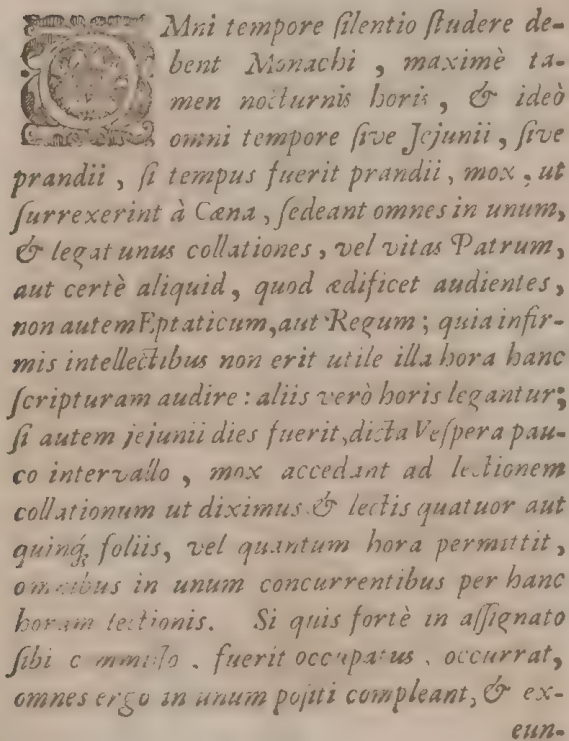 OMni tempore ſilentio ſtudere de-
bent Monachi , maximè ta-
men nocturnis horis , & ideò
omni tempore ſive Jejunii , ſive
prandii , ſi tempus fuerit prandii , mox , ut
ſurrexerint à Cæna , ſedeant omnes in unum,
& legat unus collationes , vel vitas Patrum,
aut certè aliquid , quod ædificet audientes ,
non autem Eptaticum, aut Regum ; quia infir-
mis intellectibus non erit utile illa hora hanc
ſcripturam audire : aliis verò horis legantur;
ſi autem jejunii dies fuerit, dicta Veſpera pau-
co intervallo , mox accedant ad lectionem
collationum ut diximus & lectis quatuor aut
quinq; foliis, vel quantum hora permittit ,
omnibus in unum concurrentibus per hanc
horam lectionis. Si quis fortè in aſſignato
ſibi fuerit occupatus , occurrat,
omnes ergo in unum poſiti compleant, & ex-
eun-